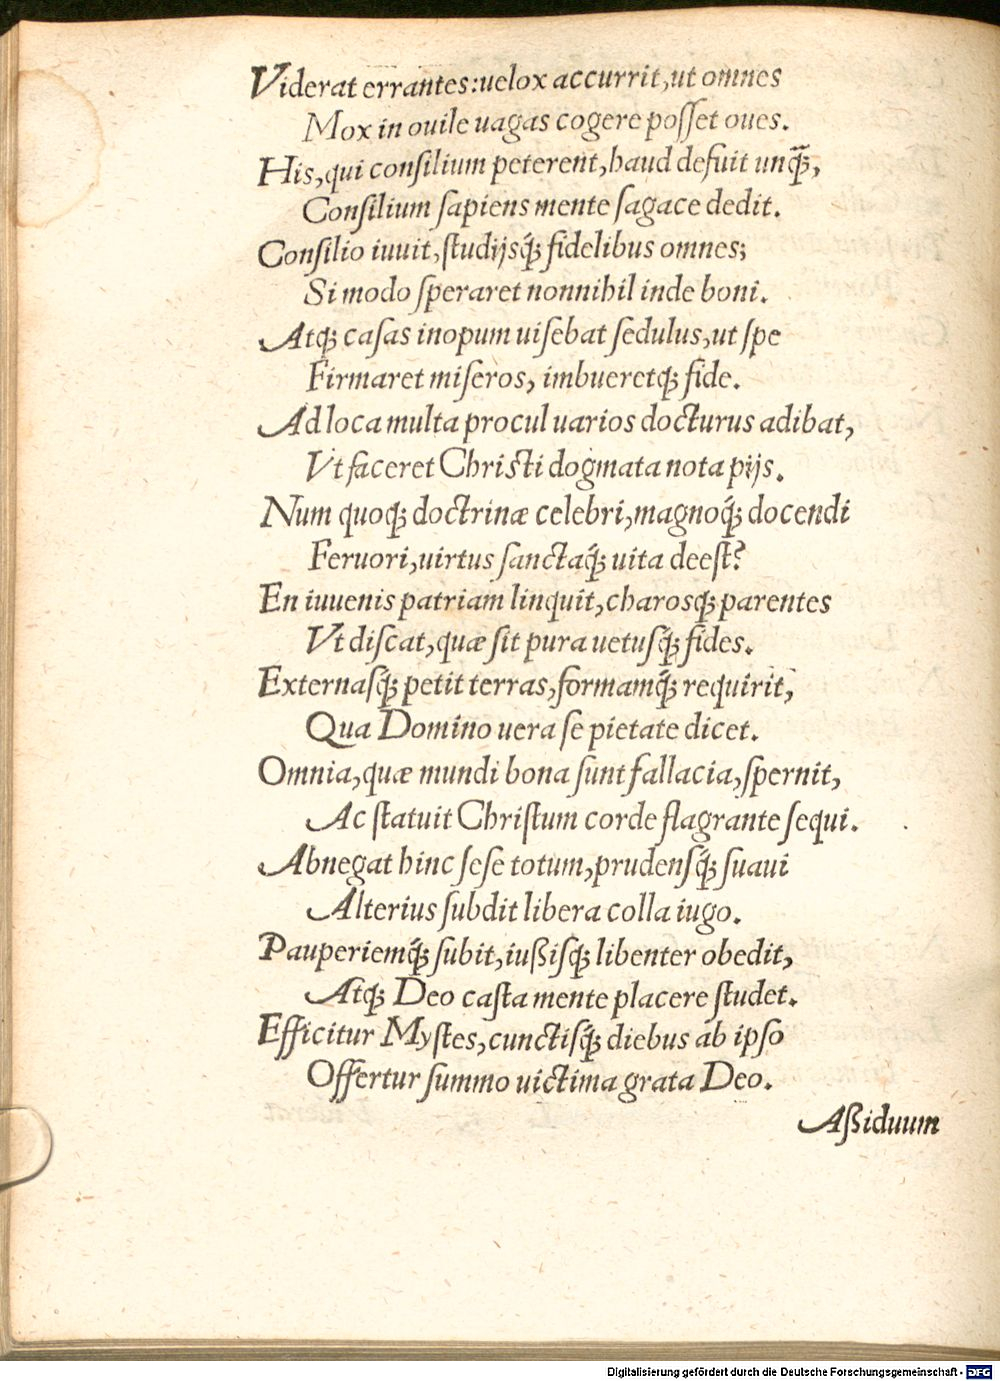 Viderat errantes:uelox accurrit,ut omnes
Mox in ouile uagas cogere poſſet oues.
His,qui conſilium peterent,haud defuit unq̃ꝫ,
Conſilium ſapiens mente ſagace dedit.
Conſilio iuuit,ſtudijsq́ꝫ fidelibus omnes;
Si modo ſperaret nonnihil inde boni.
Atqꝫ caſas inopum uiſebat ſedulus,ut ſpe
Firmaret miſeros, imbueretqꝫ fide.
Ad loca multa procul uarios docturus adibat,
Vt faceret Chriſti dogmata nota pijs.
Num quoqꝫ doctrinæ celebri,magnoq́ꝫ docendi
Feruori,uirtus ſanctaq́ꝫ uita deeſt?
En iuuenis patriam linquit,charosqꝫ parentes
Vt diſcat,quæ ſit pura uetuſq́ꝫ fides.
Externaſq́ꝫ petit terras,formamq́ꝫ requirit,
Qua Domino uera ſe pietate dicet.
Omnia,quæ mundi bona ſunt fallacia,ſpernit,
Ac ſtatuit Chriſtum corde flagrante ſequi.
Abnegat hinc ſeſe totum,prudenſq́ꝫ ſuaui
Alterius ſubdit libera colla iugo.
Pauperiemq́ꝫ ſubit,iußiſqꝫ libenter obedit,
Atqꝫ Deo caſta mente placere ſtudet.
Efficitur Myſtes,cunctiſq́ꝫ diebus ab ipſo
Offertur ſummo uictima grata Deo.
Aßiduum
Digitalisierung gefördert durch die Deutsche Forschungsgemeinschaft - DFG